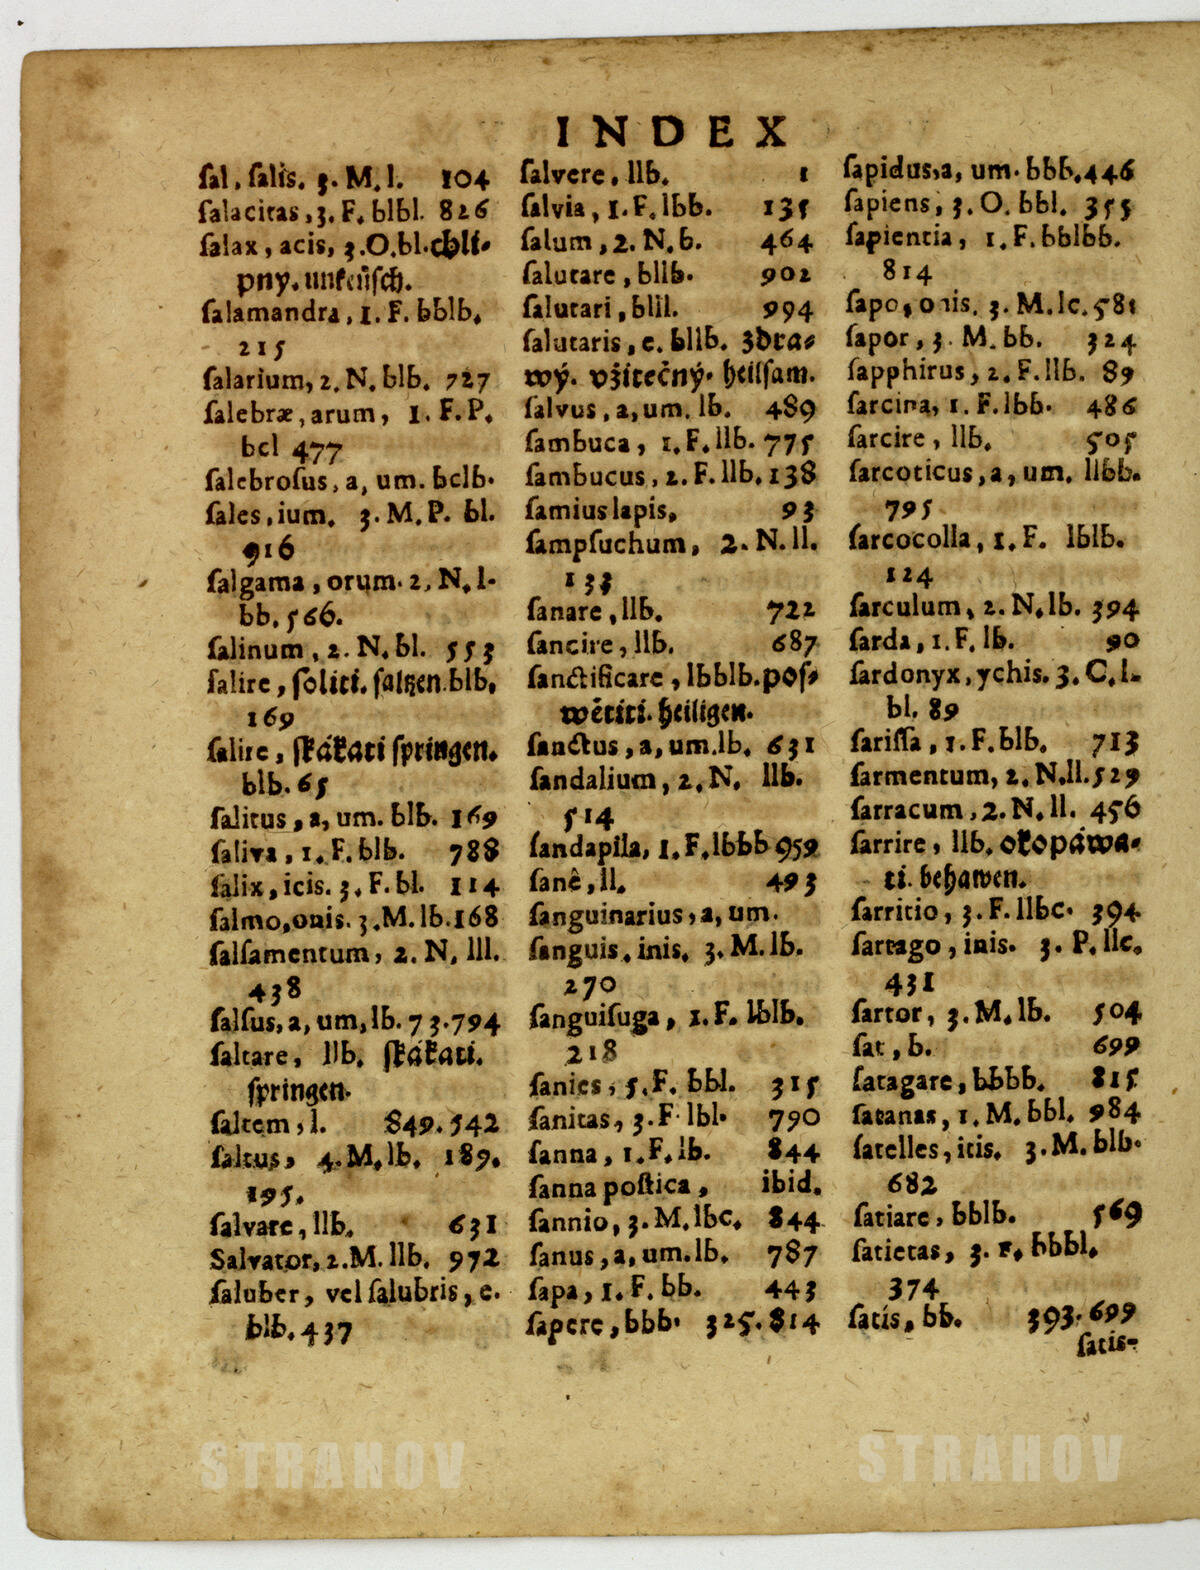 INDEX
ſal, ſalis. 3. M. l. 104
ſalacitas, 3. F. blbl. 826
ſalax, acis, 3. O. bl. chli⸗
pný. unkeůſch.
ſalamandra, 1. F. bblb.
215
ſalarium, 2. N. blb. 727
ſalebræ, arum, 1. F. P.
bcl 477
ſalebroſus, a, um. bclb.
ſales, ium. 3. M. P. bl.
916
ſalgama, orum. 2. N. l-
bb. 566.
ſalinum, 2. N. bl. 553
ſalire, ſoliti. ſaltzen. blb.
169
ſalire, ſkákati ſpringen.
blb. 65
ſalitus, a, um. blb. 169
ſaliva, 1. F. blb. 788
ſalix, icis. 3. F. bl. 114
ſalmo, onis. 3. M. lb. 168
ſalſamentum, 2. N. lll.
438
ſalſus, a, um, lb. 73. 794
ſaltare, llb. ſkákati.
ſpringen.
ſaltem, l. 849. 542
ſaltus, 4. M. lb. 189.
195.
ſalvare, llb. 631
Salvator, 2. M. llb. 972
ſaluber, vel ſalubris, e.
blb. 437
ſalvere, llb. 1
ſalvia, 1. F. lbb. 135
ſalum, 2. N. b. 464
ſalutare, bllb. 902
ſalutari, blll. 994
ſalutaris, e. bllb. zdra⸗
wý. vžitečný. heilſam.
ſalvus, a, um. lb. 489
ſambuca, 1. F. llb. 775
ſambucus, 2. F. llb. 138
ſamius lapis, 93
ſampſuchum, 2. N. ll.
133
ſanare, llb. 722
ſancire, llb. 687
ſanctificare, lbblb. poſ⸗
wětiti. heiligen.
ſanctus, a, um. lb. 631
ſandalium, 2. N. llb.
514
ſandapila, 1. F. lbbb 959
ſanê, ll. 493
ſanguinarius, a, um.
ſanguis, inis, 3. M. lb.
270
ſanguiſuga, 1. F. lblb.
218
ſanies, 5. F. bbl. 315
ſanitas, 3. F. lbl. 790
ſanna, 1. F. lb. 844
ſanna poſtica, ibid.
ſannio, 3. M. lbc. 844
ſanus, a, um. lb. 787
ſapa, 1. F. bb. 443
ſapere, bbb. 325. 814
ſapidus, a, um. bbb. 446
ſapiens, 3. O. bbl. 355
ſapientia, 1. F. bblbb.
814
ſapo, onis. 3. M. lc. 581
ſapor, 3. M. bb. 324
ſapphirus, 2. F. llb. 89
ſarcina, 1. F. lbb. 486
ſarcire, llb. 505
ſarcoticus, a, um. llbb.
795
ſarcocolla, 1. F. lblb.
124
ſarculum, 2. N. lb. 394
ſarda, 1. F. lb. 90
ſardonyx, ychis. 3. C. l-
bl. 89
ſariſſa, 1. F. blb. 713
ſarmentum, 2. N. ll. 529
ſarracum, 2. N. ll. 456
ſarrire, llb. okopáwa⸗
ti. behawen.
ſarritio, 3. F. llbc. 394
ſartago, inis. 3. P. llc.
431
ſartor, 3. M. lb. 504
ſat, b. 699
ſatagare, bbbb. 815
ſatanas, 1. M. bbl. 984
ſatelles, itis. 3. M. blb.
682
ſatiare, bblb. 569
ſatietas, 3. F. bbbl.
374
ſatis, bb. 393. 699
ſatis-
STRAHOV STRAHOV